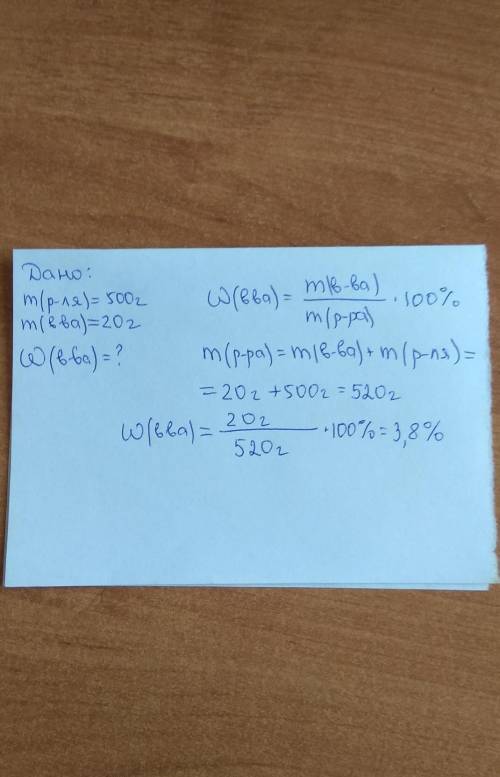 Дано:
m(р-ля)=500г
m(вва)=20г
W(в-ва)=?
W(вва) = m(в-ва) / m(р-ра) · 100%
m(р-ра) = m(в-ва) + m(р-ля) =
= 20г + 500г = 520г
W(вва) = 20г / 520г · 100% = 3,8%